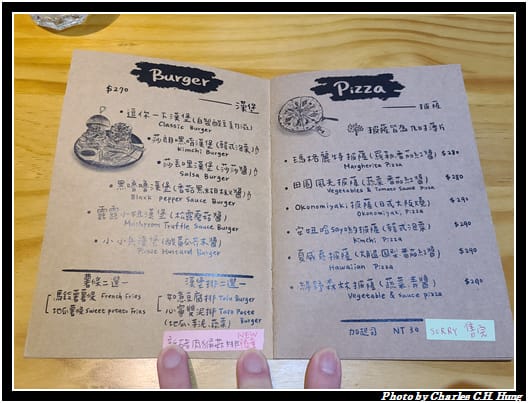 Burger
漢堡
$270
Classic Burger
Kimchi Burger
Salsa Burger
黑嚕嚕漢堡(番茄黑胡椒醬)
Black pepper Sauce Burger
Mushroom Truffle Sauce Burger
小小兵漢堡
Pizza Mustard Burger
薯條二選一
馬鈴薯薯條 French Fries
地瓜薯條 Sweet potato Fries
漢堡排二選一
如意豆腐排 Tofu Burger
心靈雙泥排 Taro Patte
(地瓜、芋泥、蔬菜) Burger
NEW
Pizza
披薩
披薩皆為10吋薄片
瑪格麗特披薩(羅勒番茄紅醬) $280
Margherita Pizza
田園風光披薩(蔬菜番茄紅醬) $280
Vegetables & Tomato Sauce Pizza
Okonomiyaki披薩(日式大阪燒) $290
Okonomiyaki Pizza
安妞阿Sayo的披薩(韓式泡菜) $290
Kimchi Pizza
夏威夷披薩 $290
Hawaiian Pizza
綠野森林披薩(蔬菜青醬) $290
Vegetable & sauce pizza
加起司 NT 30
SORRY 售完
Photo by Charles C.H. Hung